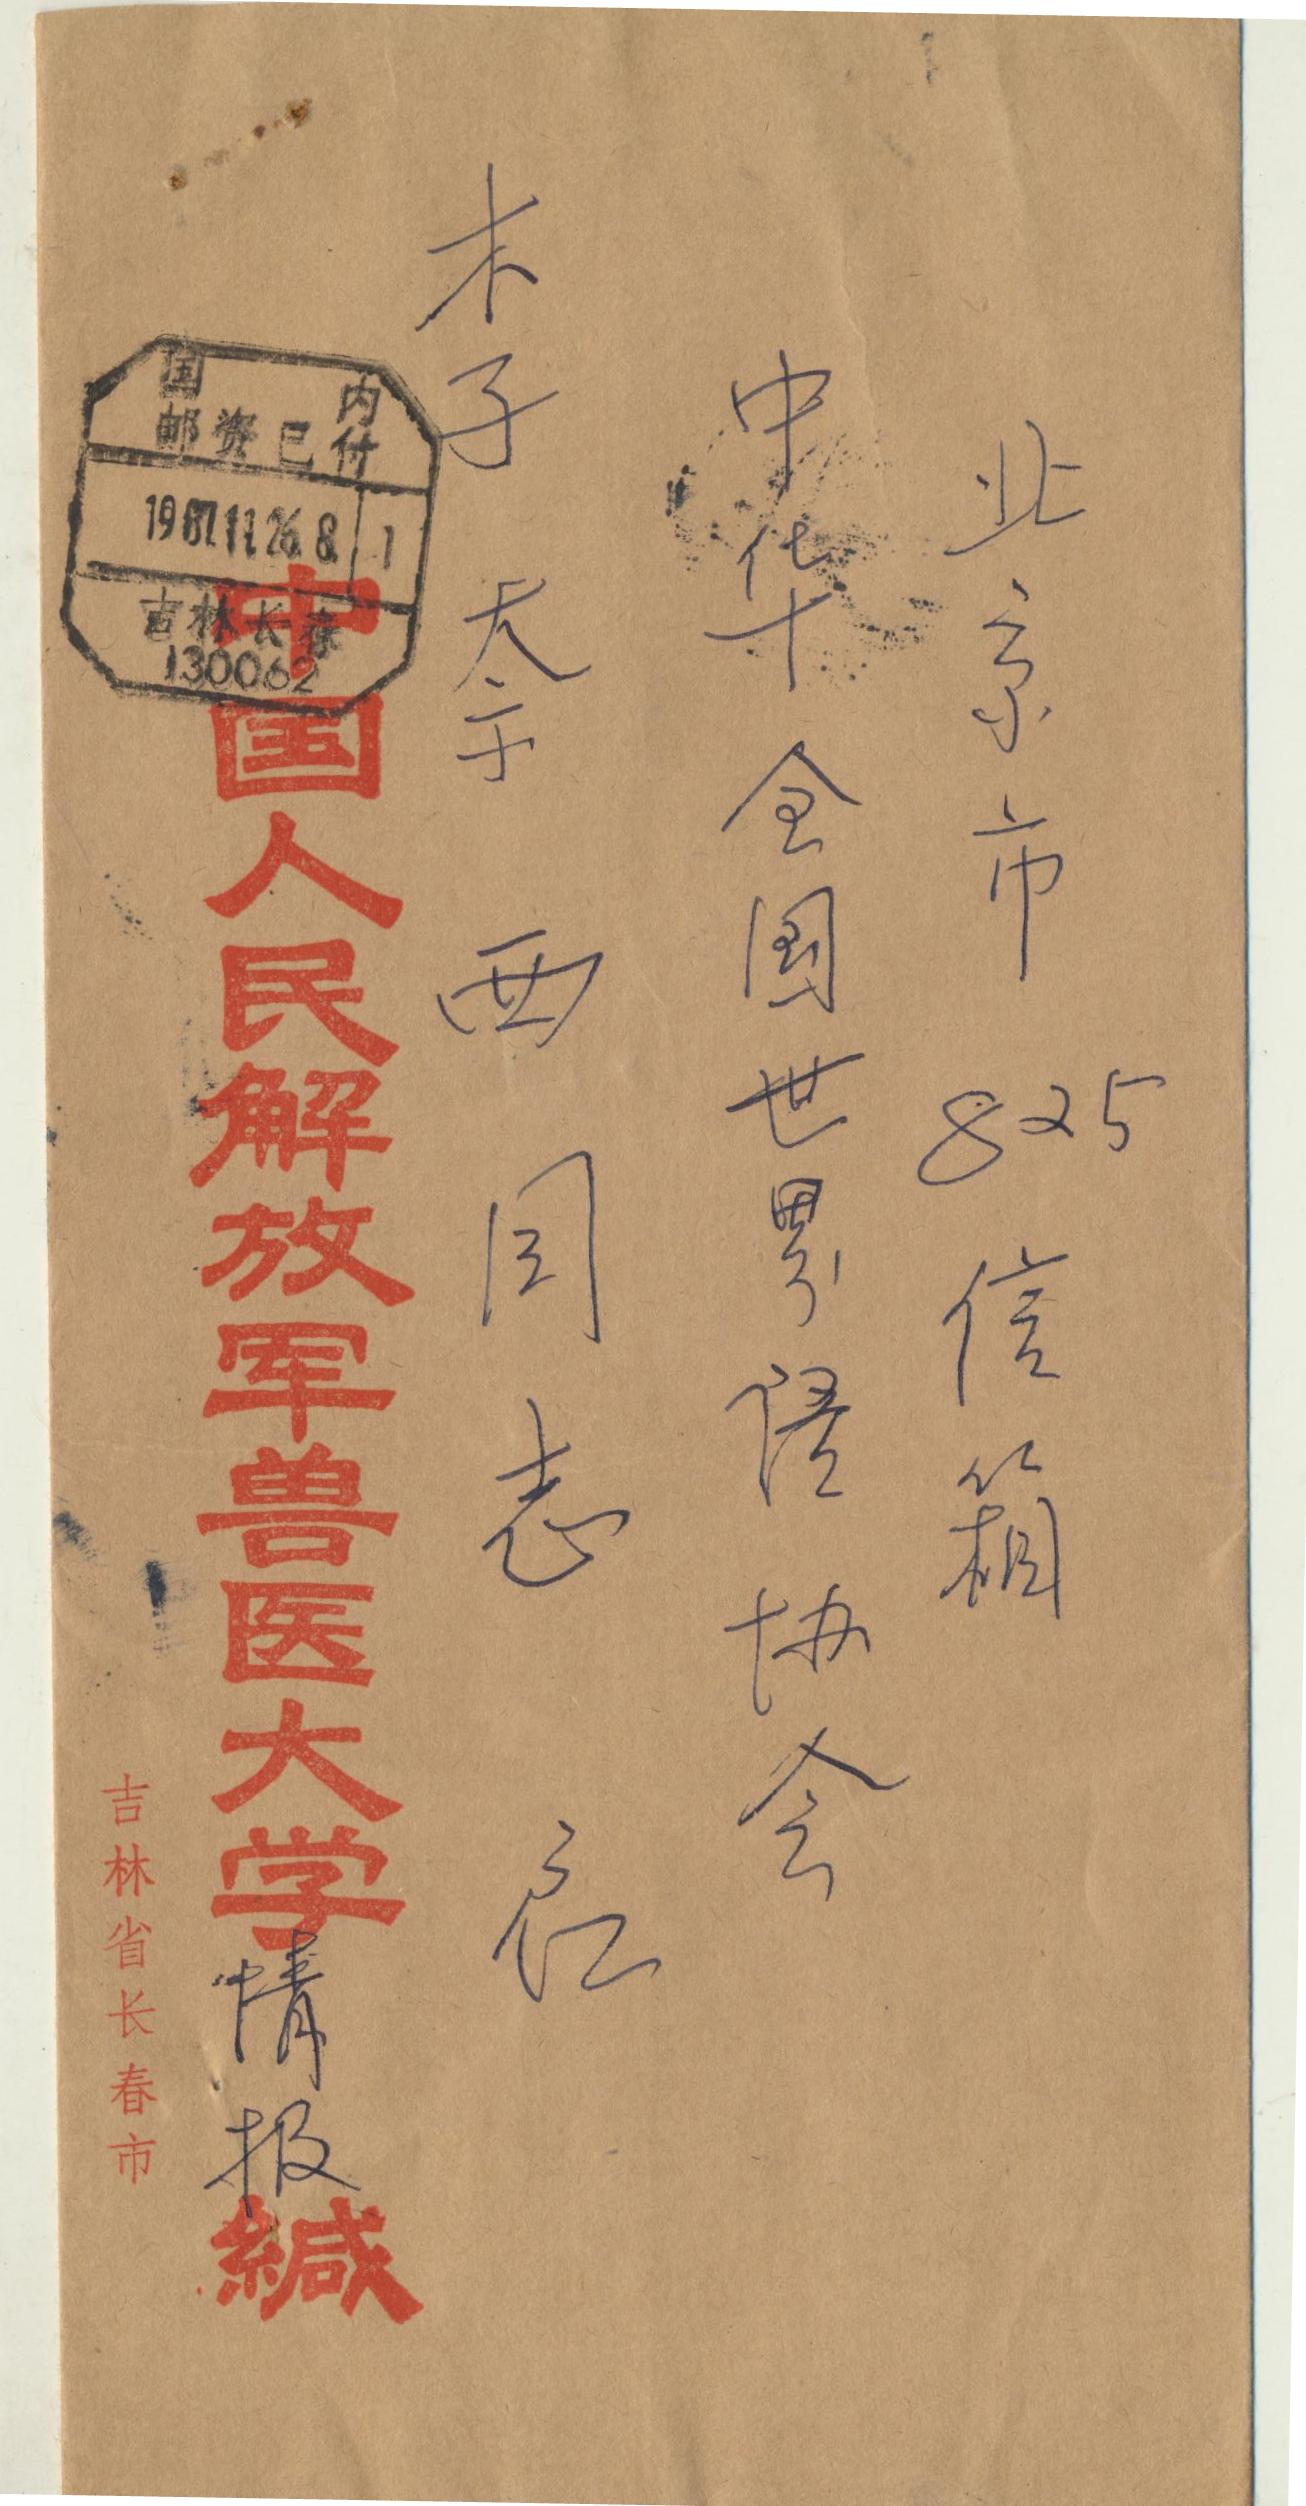 北京市 825 信箱
中华全國世界语协会
李奈西同志
国内
邮资已付
1987.11.26.8 1
吉林长春
130062
中国人民解放军兽医大学情报緘
吉林省长春市